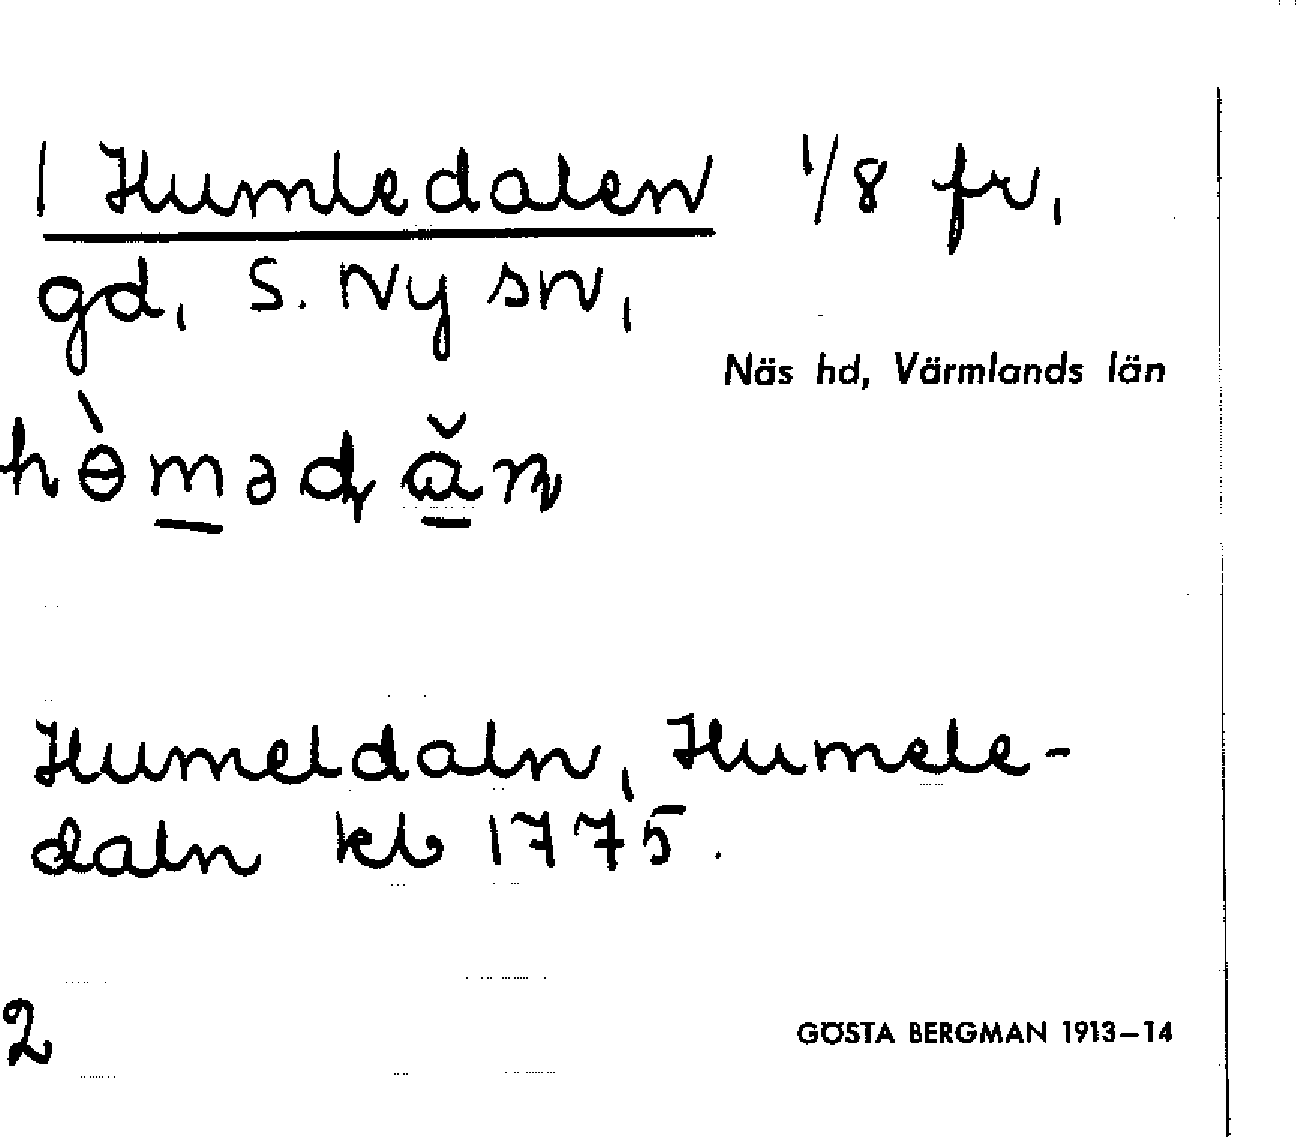 1 Humledalen 1/8 fr,
gd, S. Ny sn,
Näs hd, Värmlands län
hɵ̀m̲ədɑ̲̆n
Humeldaln, Humele-
daln kb 1775.
2
GÖSTA BERGMAN 1913–14